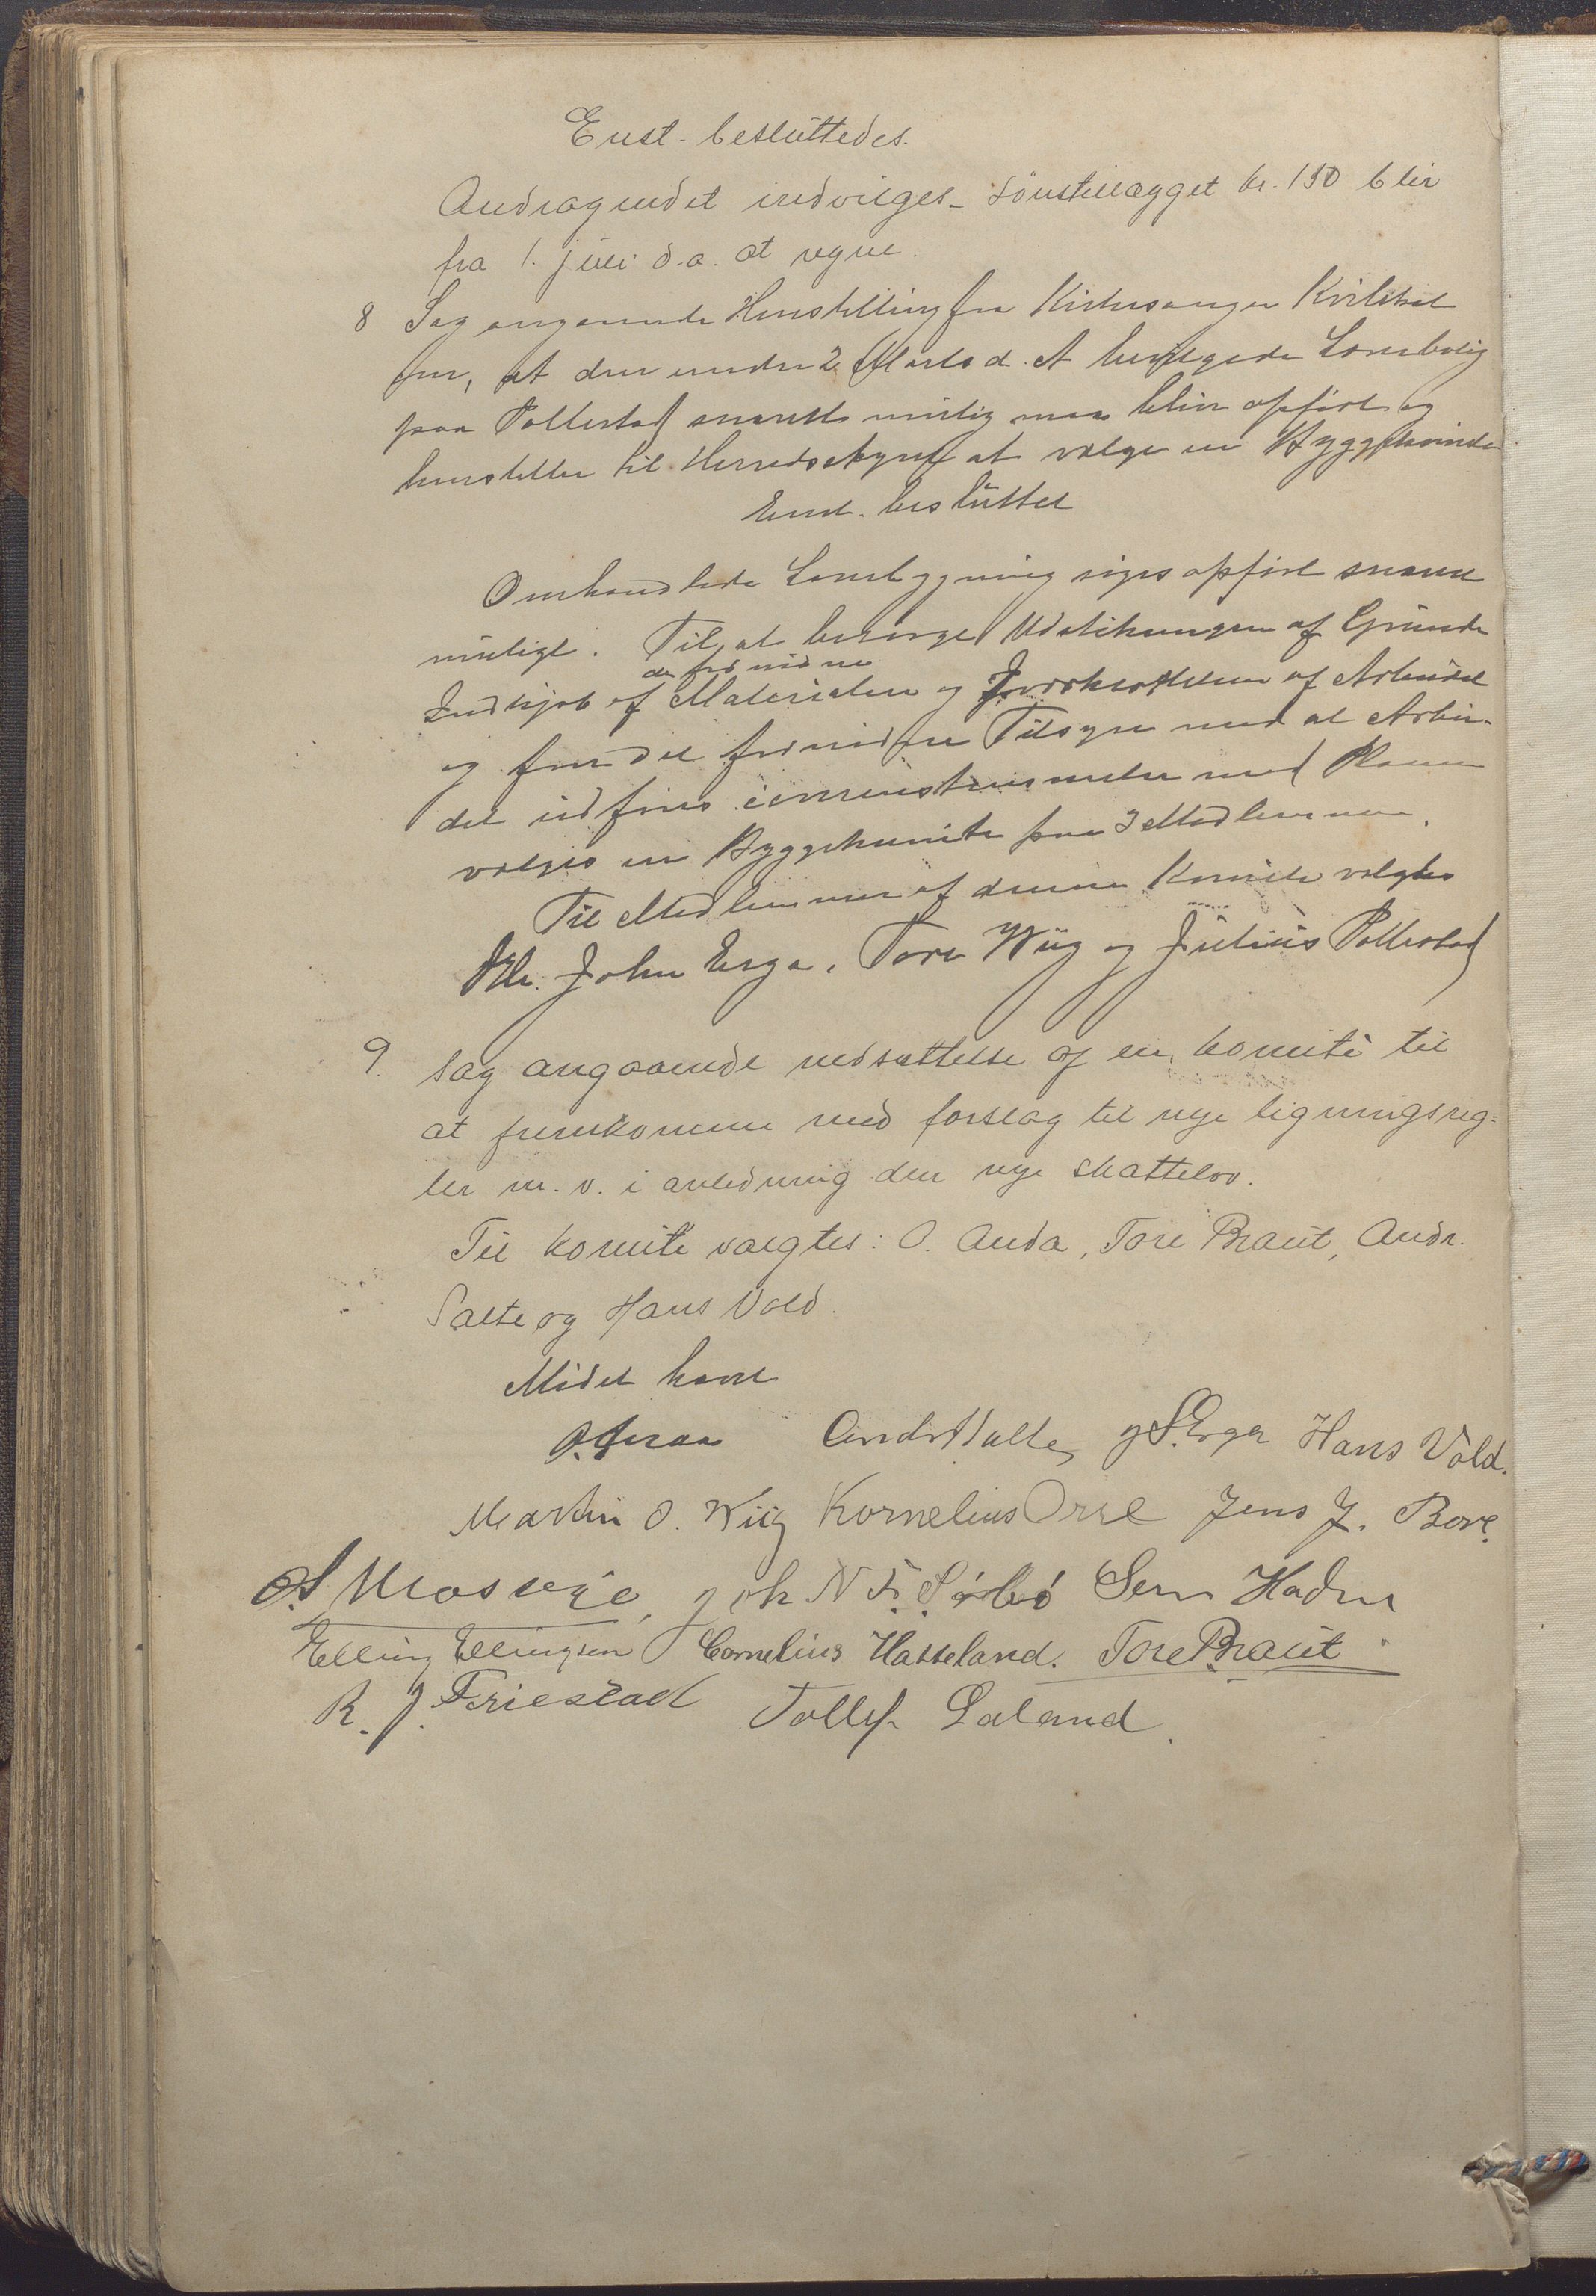 Enst. besluttedes.
Andragendet indvilges – Lönstillægget kr. 150 blir
fra 1. juli d.a. at regne.
8 Sag angaaende Henstilling fra Kirkesanger Kvilstad
om, at den under 2 Marts d. A bevilgede Lærerbolig
paa Pollestad snarest mulig maa bliver opført og
henstiller til Herredsstyret at vælge en Byggekomite
Enst. besluttet
Omhandlede Lærerbygning søges opført snarest
muligt. Til at besørge Udstikningen af Grunde
de fornødne
Indkjøb af Materialer og Iværksættelsen af Arbeidet
og føre det fornødne Tilsyn med at Arbei-
det udføres i overensstemmelse med Planen
vælges en Byggekomite paa 3 Medlemmer.
Til Medlemmer af denne Komite valgtes
Hr. John Erga, Tore Wiig og Julius Pollestad
9. Sag angaaende nedsættelse af en komité til
at fremkomme med forslag til nye ligningsreg=
ler m. v. i anledning den nye skattelov.
Til komite valgtes: O. Anda, Tore Braut, Andr.
Salte og Hans Vold.
Mødet hævet
Andr Salte J S. Erga Hans Vold.
Martin O. Wiig Kornelius Orre Jens J. Bore.
O. S. Mossige, Joh N Fr. Sörbö Sern Hadm
Elling Ellingsen Cornelius Hatteland. Tore Braut
R. J. Friestad Tollef Laland.